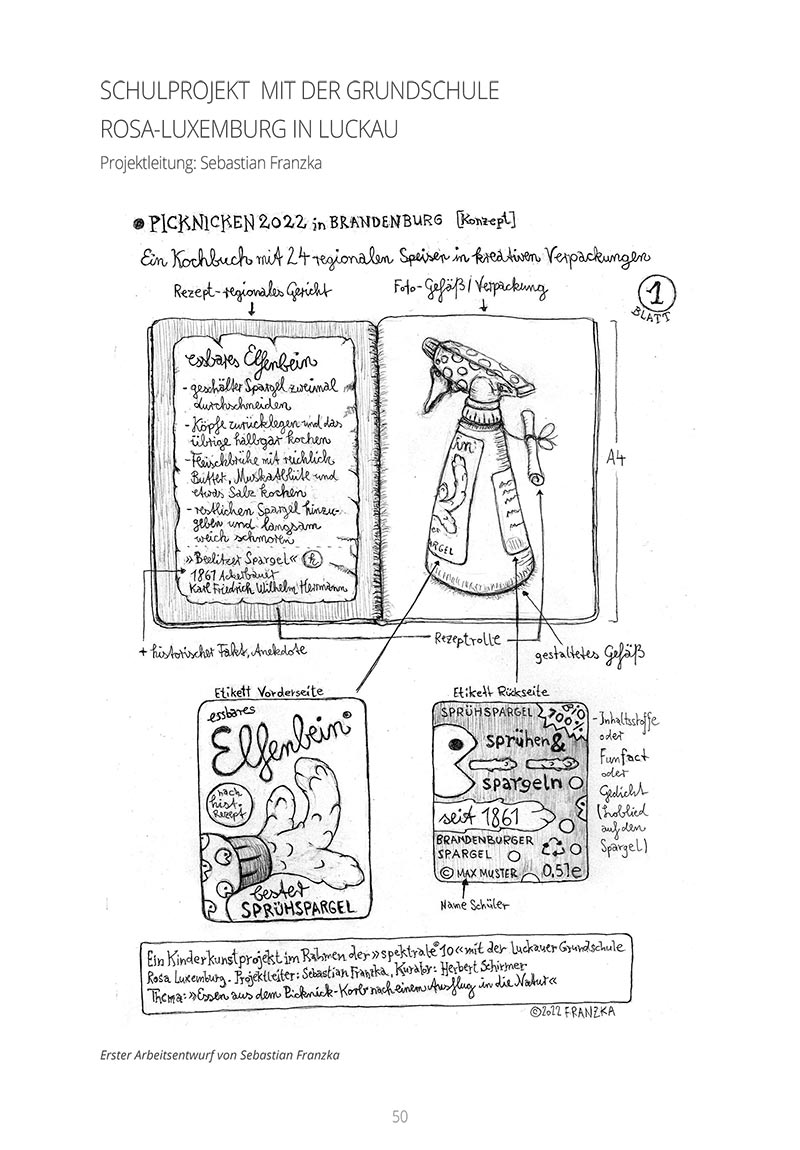 SCHULPROJEKT MIT DER GRUNDSCHULE
ROSA-LUXEMBURG IN LUCKAU
Projektleitung: Sebastian Franzka
PICKNICKEN 2022 in BRANDENBURG [Konzept]
Ein Kochbuch mit 24 regionalen Speisen in kreativen Verpackungen
Rezept-regionales Gericht
Foto-Gefäß/Verpackung
1
BLATT
essbares Elfenbein
- geschälter Spargel zweimal
durchschneiden
- Köpfe zurücklegen und das
übrige halbgar kochen
- Fleischbrühe mit reichlich
Butter, Muskatblüte und
etwas Salz kochen
- restlichen Spargel hinzu-
geben und langsam
weich schmoren
»Beelitzer Spargel«
1861 Ackerbauer
Karl Friedrich Wilhelm Herrmann
in
ARGEL
A4
+ historischer Fakt, Anekdote
Rezeptrolle
gestaltetes Gefäß
Etikett Vorderseite
essbares
Elfenbein
nach
hist.
Rezept
bester
SPRÜHSPARGEL
Etikett Rückseite
SPRÜHSPARGEL
BIO
100%
sprühen &
spargeln
seit 1861
BRANDENBURGER
SPARGEL
© MAX MUSTER
0,51e
Name Schüler
- Inhaltsstoffe
oder
Funfact
oder
Gedicht
(Loblied
auf den
Spargel)
Ein Kinderkunstprojekt im Rahmen der »spektrale 10« mit der Luckauer Grundschule
Rosa Luxemburg. Projektleiter: Sebastian Franzka, Kurator: Herbert Schirmer
Thema: »Essen aus dem Picknick-Korb nach einem Ausflug in die Natur«
©2022 FRANZKA
Erster Arbeitsentwurf von Sebastian Franzka
50